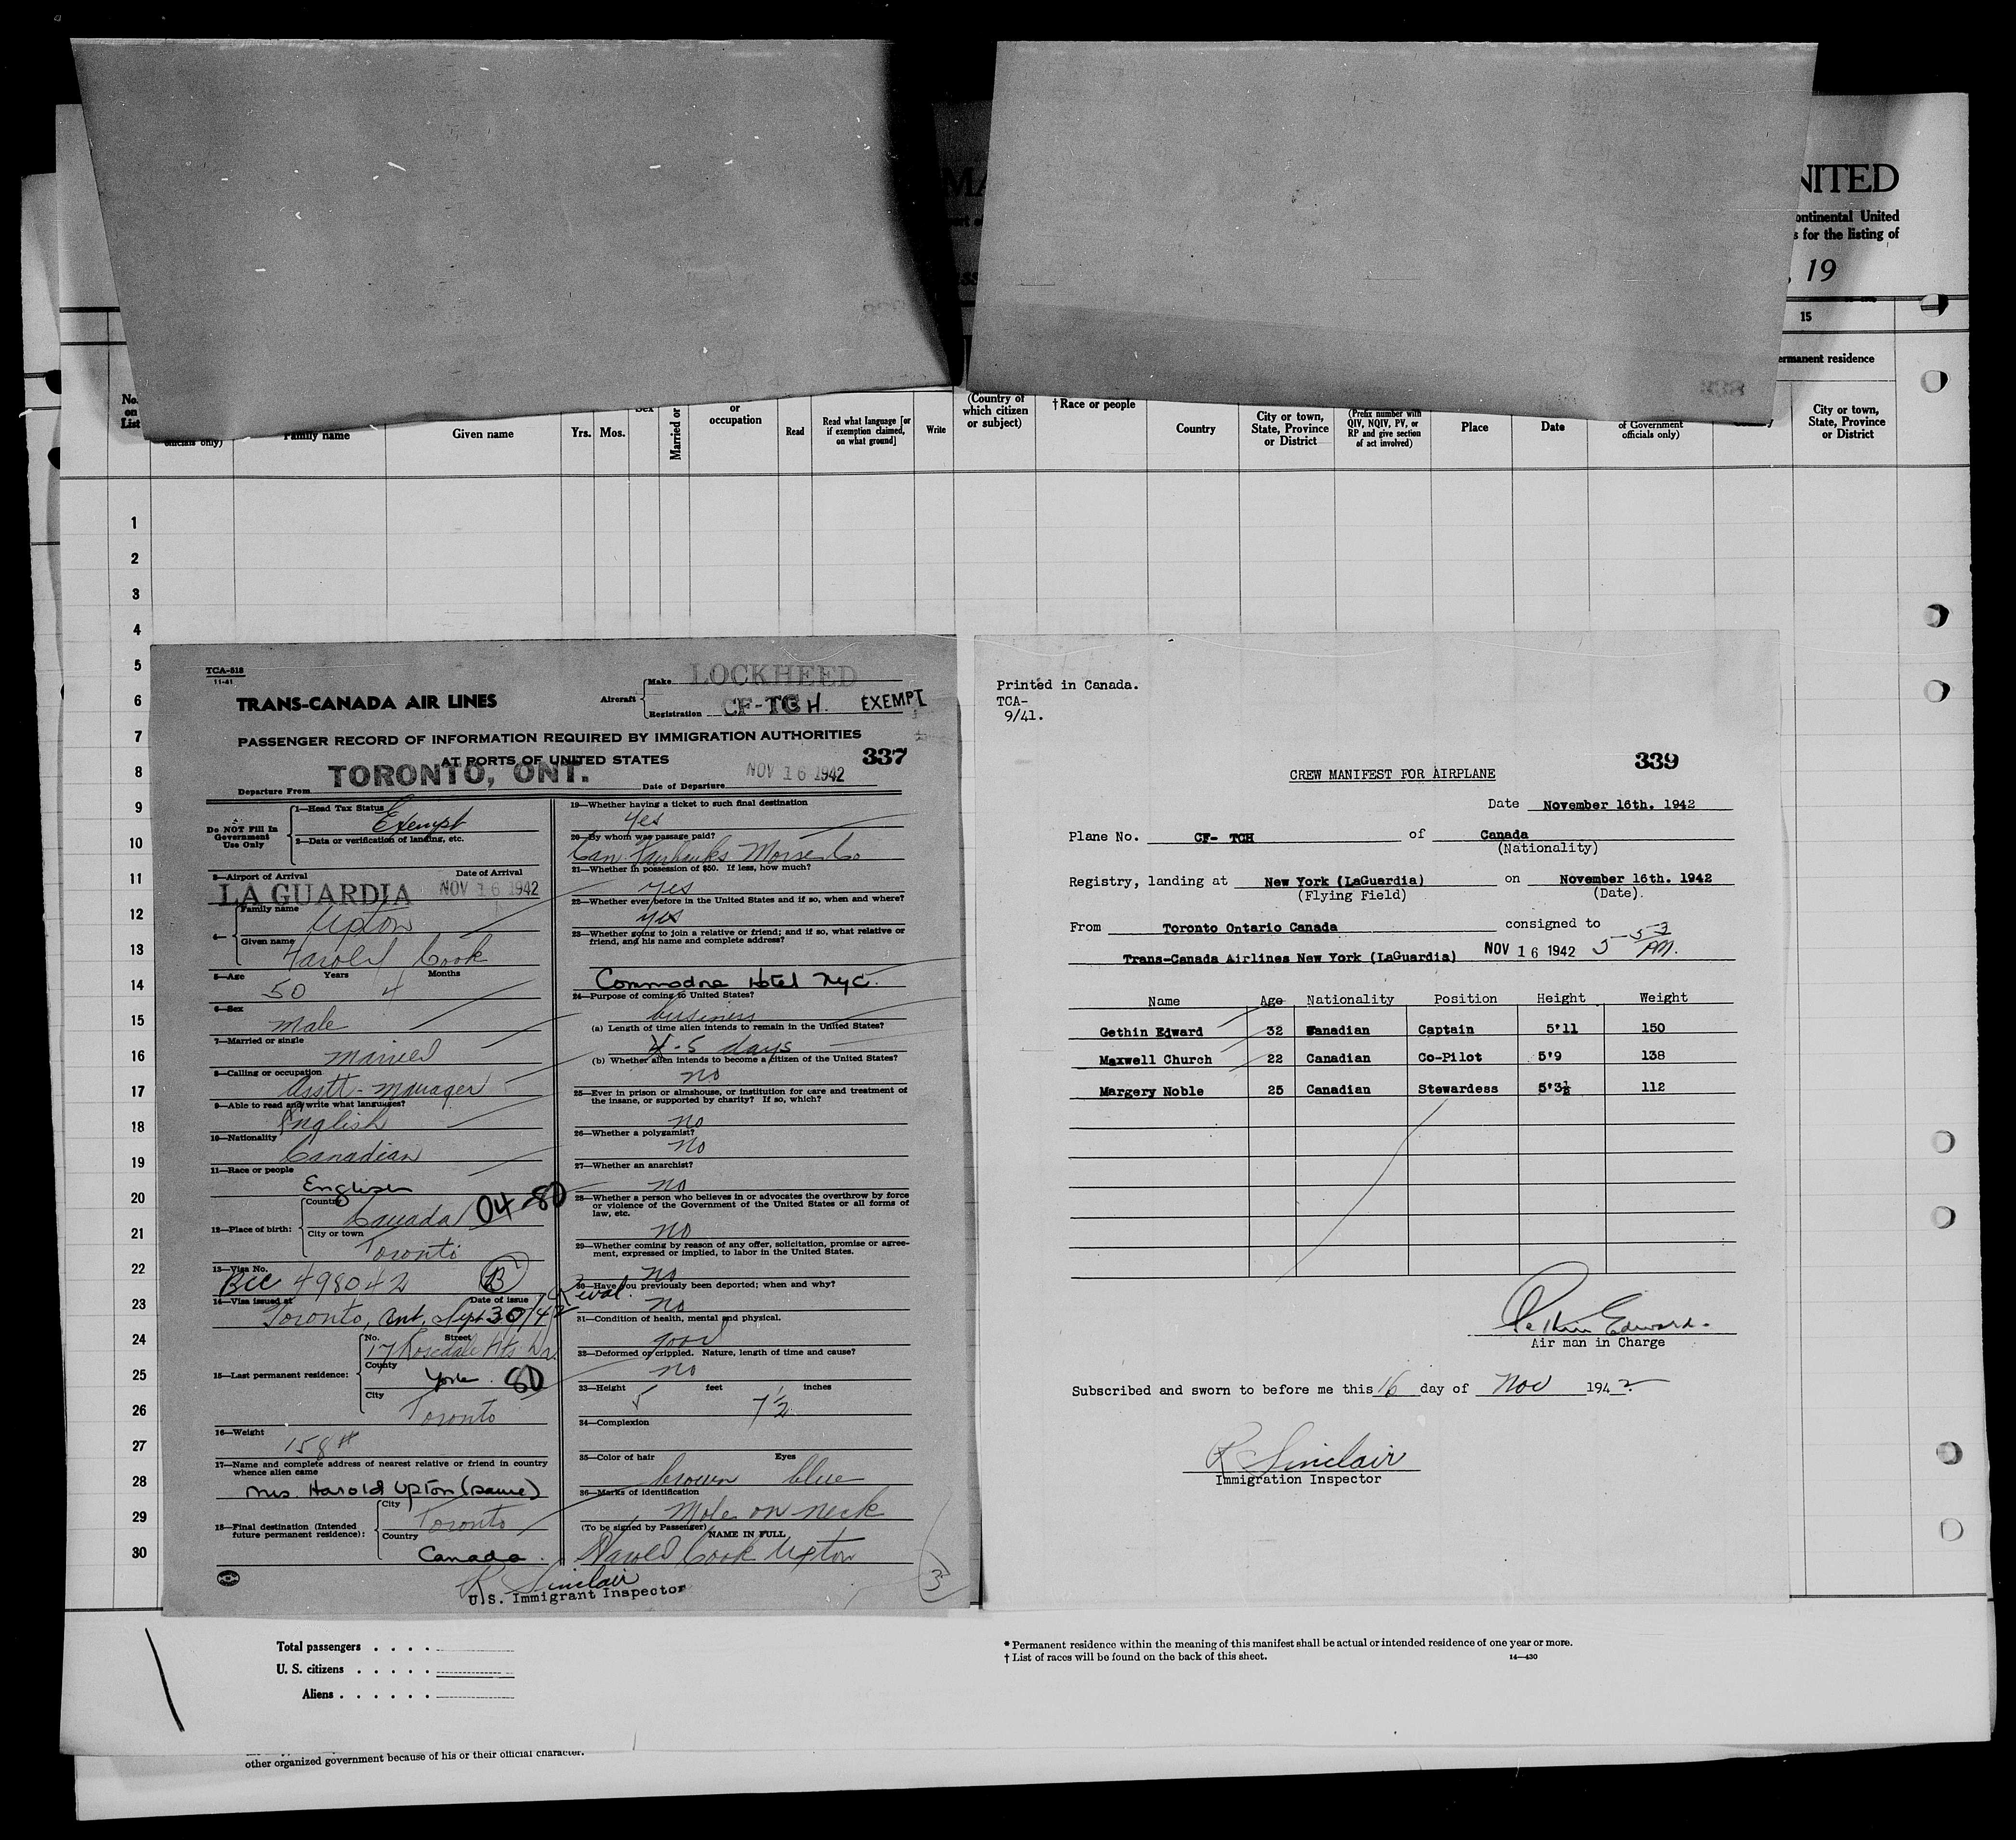 NITED
ontinental United
s for the listing of
, 19
15
ermanent residence
No. on List
officials only)
Family name
Given name
Yrs.
Mos.
Sex
Married or
or occupation
Read
Read what language [or if exemption claimed, on what ground]
Write
(Country of which citizen or subject)
†Race or people
Country
City or town, State, Province or District
(Prefix number with QIV, NQIV, PV, or RP and give section of act involved)
Place
Date
of Government officials only)
City or town, State, Province or District
1
2
3
4
5
6
7
8
9
10
11
12
13
14
15
16
17
18
19
20
21
22
23
24
25
26
27
28
29
30
TCA-818
11-41
TRANS-CANADA AIR LINES
Aircraft
Make LOCKHEED
Registration CF-TCH. EXEMPT
PASSENGER RECORD OF INFORMATION REQUIRED BY IMMIGRATION AUTHORITIES
AT PORTS OF UNITED STATES
337
Departure From TORONTO, ONT.
Date of Departure NOV 16 1942
Do NOT Fill In Government Use Only
1—Head Tax Status
Exempt
2—Data or verification of landing, etc.
3—Airport of Arrival
Date of Arrival
LA GUARDIA NOV 16 1942
4—
Family name
Upton
Given name
Harold Cook
5—Age Years Months
50 4
6—Sex
male
7—Married or single
married
8—Calling or occupation
Asst-Manager
9—Able to read and write what languages?
English
10—Nationality
Canadian
11—Race or people
English
12—Place of birth:
Country
Canada 04-80
City or town
Toronto
13—Visa No.
BCC 498042 B
14—Visa issued at Date of issue
Toronto, Ont, Sept 30/42
15—Last permanent residence:
No. Street
17 Rosedale Hts Dr.
County
York. 80
City
Toronto
16—Weight
158#
17—Name and complete address of nearest relative or friend in country whence alien came
Mrs. Harold Upton (same)
18—Final destination (Intended future permanent residence):
City
Toronto
Country
Canada.
19—Whether having a ticket to such final destination
Yes
20—By whom was passage paid?
Can. Fairbanks Morse Co
21—Whether in possession of $50. If less, how much?
yes
22—Whether ever before in the United States and if so, when and where?
yes
23—Whether going to join a relative or friend; and if so, what relative or friend, and his name and complete address?
Commodore Hotel NYC.
24—Purpose of coming to United States?
business
(a) Length of time alien intends to remain in the United States?
4-5 days
(b) Whether alien intends to become a citizen of the United States?
no
25—Ever in prison or almshouse, or institution for care and treatment of the insane, or supported by charity? If so, which?
no
26—Whether a polygamist?
no
27—Whether an anarchist?
no
28—Whether a person who believes in or advocates the overthrow by force or violence of the Government of the United States or all forms of law, etc.
no
29—Whether coming by reason of any offer, solicitation, promise or agreement, expressed or implied, to labor in the United States.
no
30—Have you previously been deported; when and why?
no
31—Condition of health, mental and physical.
good
32—Deformed or crippled. Nature, length of time and cause?
no
33—Height feet inches
5 7½
34—Complexion
35—Color of hair Eyes
brown blue
36—Marks of identification
Mole on neck
(To be signed by Passenger)
NAME IN FULL
Harold Cook Upton
R Sinclair
U.S. Immigrant Inspector
3
Printed in Canada.
TCA-
9/41.
339
CREW MANIFEST FOR AIRPLANE
Date November 16th. 1942
Plane No. CF- TCH of Canada
(Nationality)
Registry, landing at New York (LaGuardia) on November 16th. 1942
(Flying Field) (Date).
From Toronto Ontario Canada consigned to
Trans-Canada Airlines New York (LaGuardia) NOV 16 1942 5-53 PM.
Name Age Nationality Position Height Weight
Gethin Edward 32 Canadian Captain 5'11 150
Maxwell Church 22 Canadian Co-Pilot 5'9 138
Margery Noble 25 Canadian Stewardess 5'3½ 112
Gethin Edward.
Air man in Charge
Subscribed and sworn to before me this 16 day of Nov 1942
R Sinclair
Immigration Inspector
Total passengers
U. S. citizens
Aliens
* Permanent residence within the meaning of this manifest shall be actual or intended residence of one year or more.
† List of races will be found on the back of this sheet.
14—430
other organized government because of his or their official character.